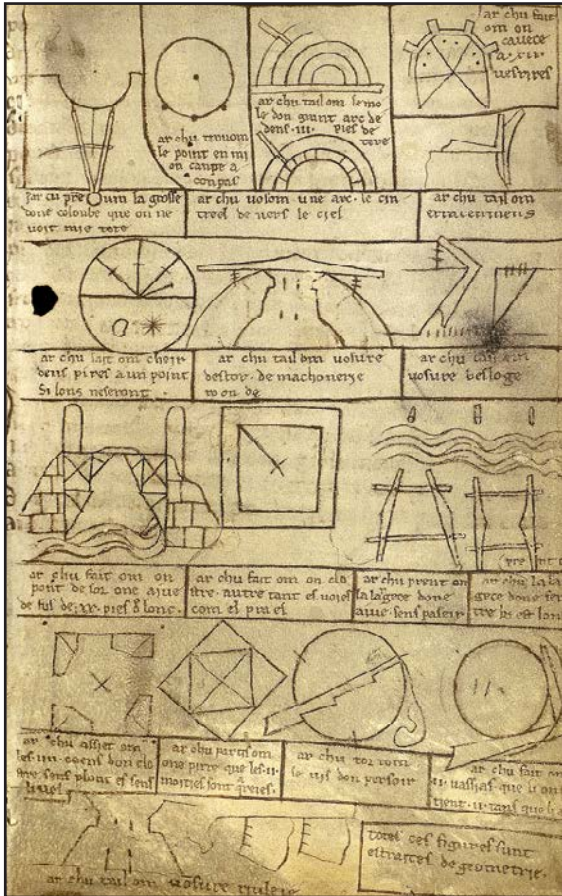 ar chu fait
om on
cavece
a · xii ·
vesrires
ar chu trovom
le point en mi
on canpe a
conpas
ar chu tail om le mo
le don grant arc de
dens · iii · pies de
tere
par cu prent um la grosse
done colonbe que on ne
voit mie tote
ar chu vosom · une arc · le cin
treel de vers le ciel
ar chu tail om
erracemens
ar chu fait om cheir
deus pires a un point
si lons neseront
ar chu tail om vosure
destor · de machonerie
roonde
ar chu tail om
vosure besloge
ar chu fait om on
pont de sor one aive
de fus de · xx · pies d lonc ·
ar chu fait om on clo
istre · autre tant es voies
com el prael
ar chu prent on
la largece done
aive · sens paseir
ar chu
gece done
ar chu assiet om
les · iiii · coens don clo
istre sens plonc et sens
livel
ar chu partis om
one pirre que les · ii ·
moities sont qreies ·
ar chu tor rom
le vis don persoir
ar chu fait om
· ii · vassias que li on
tient · ii · tans que li
ar chu tail om vosure riulere
totes ces figures sunt
estraites de geometrie ·